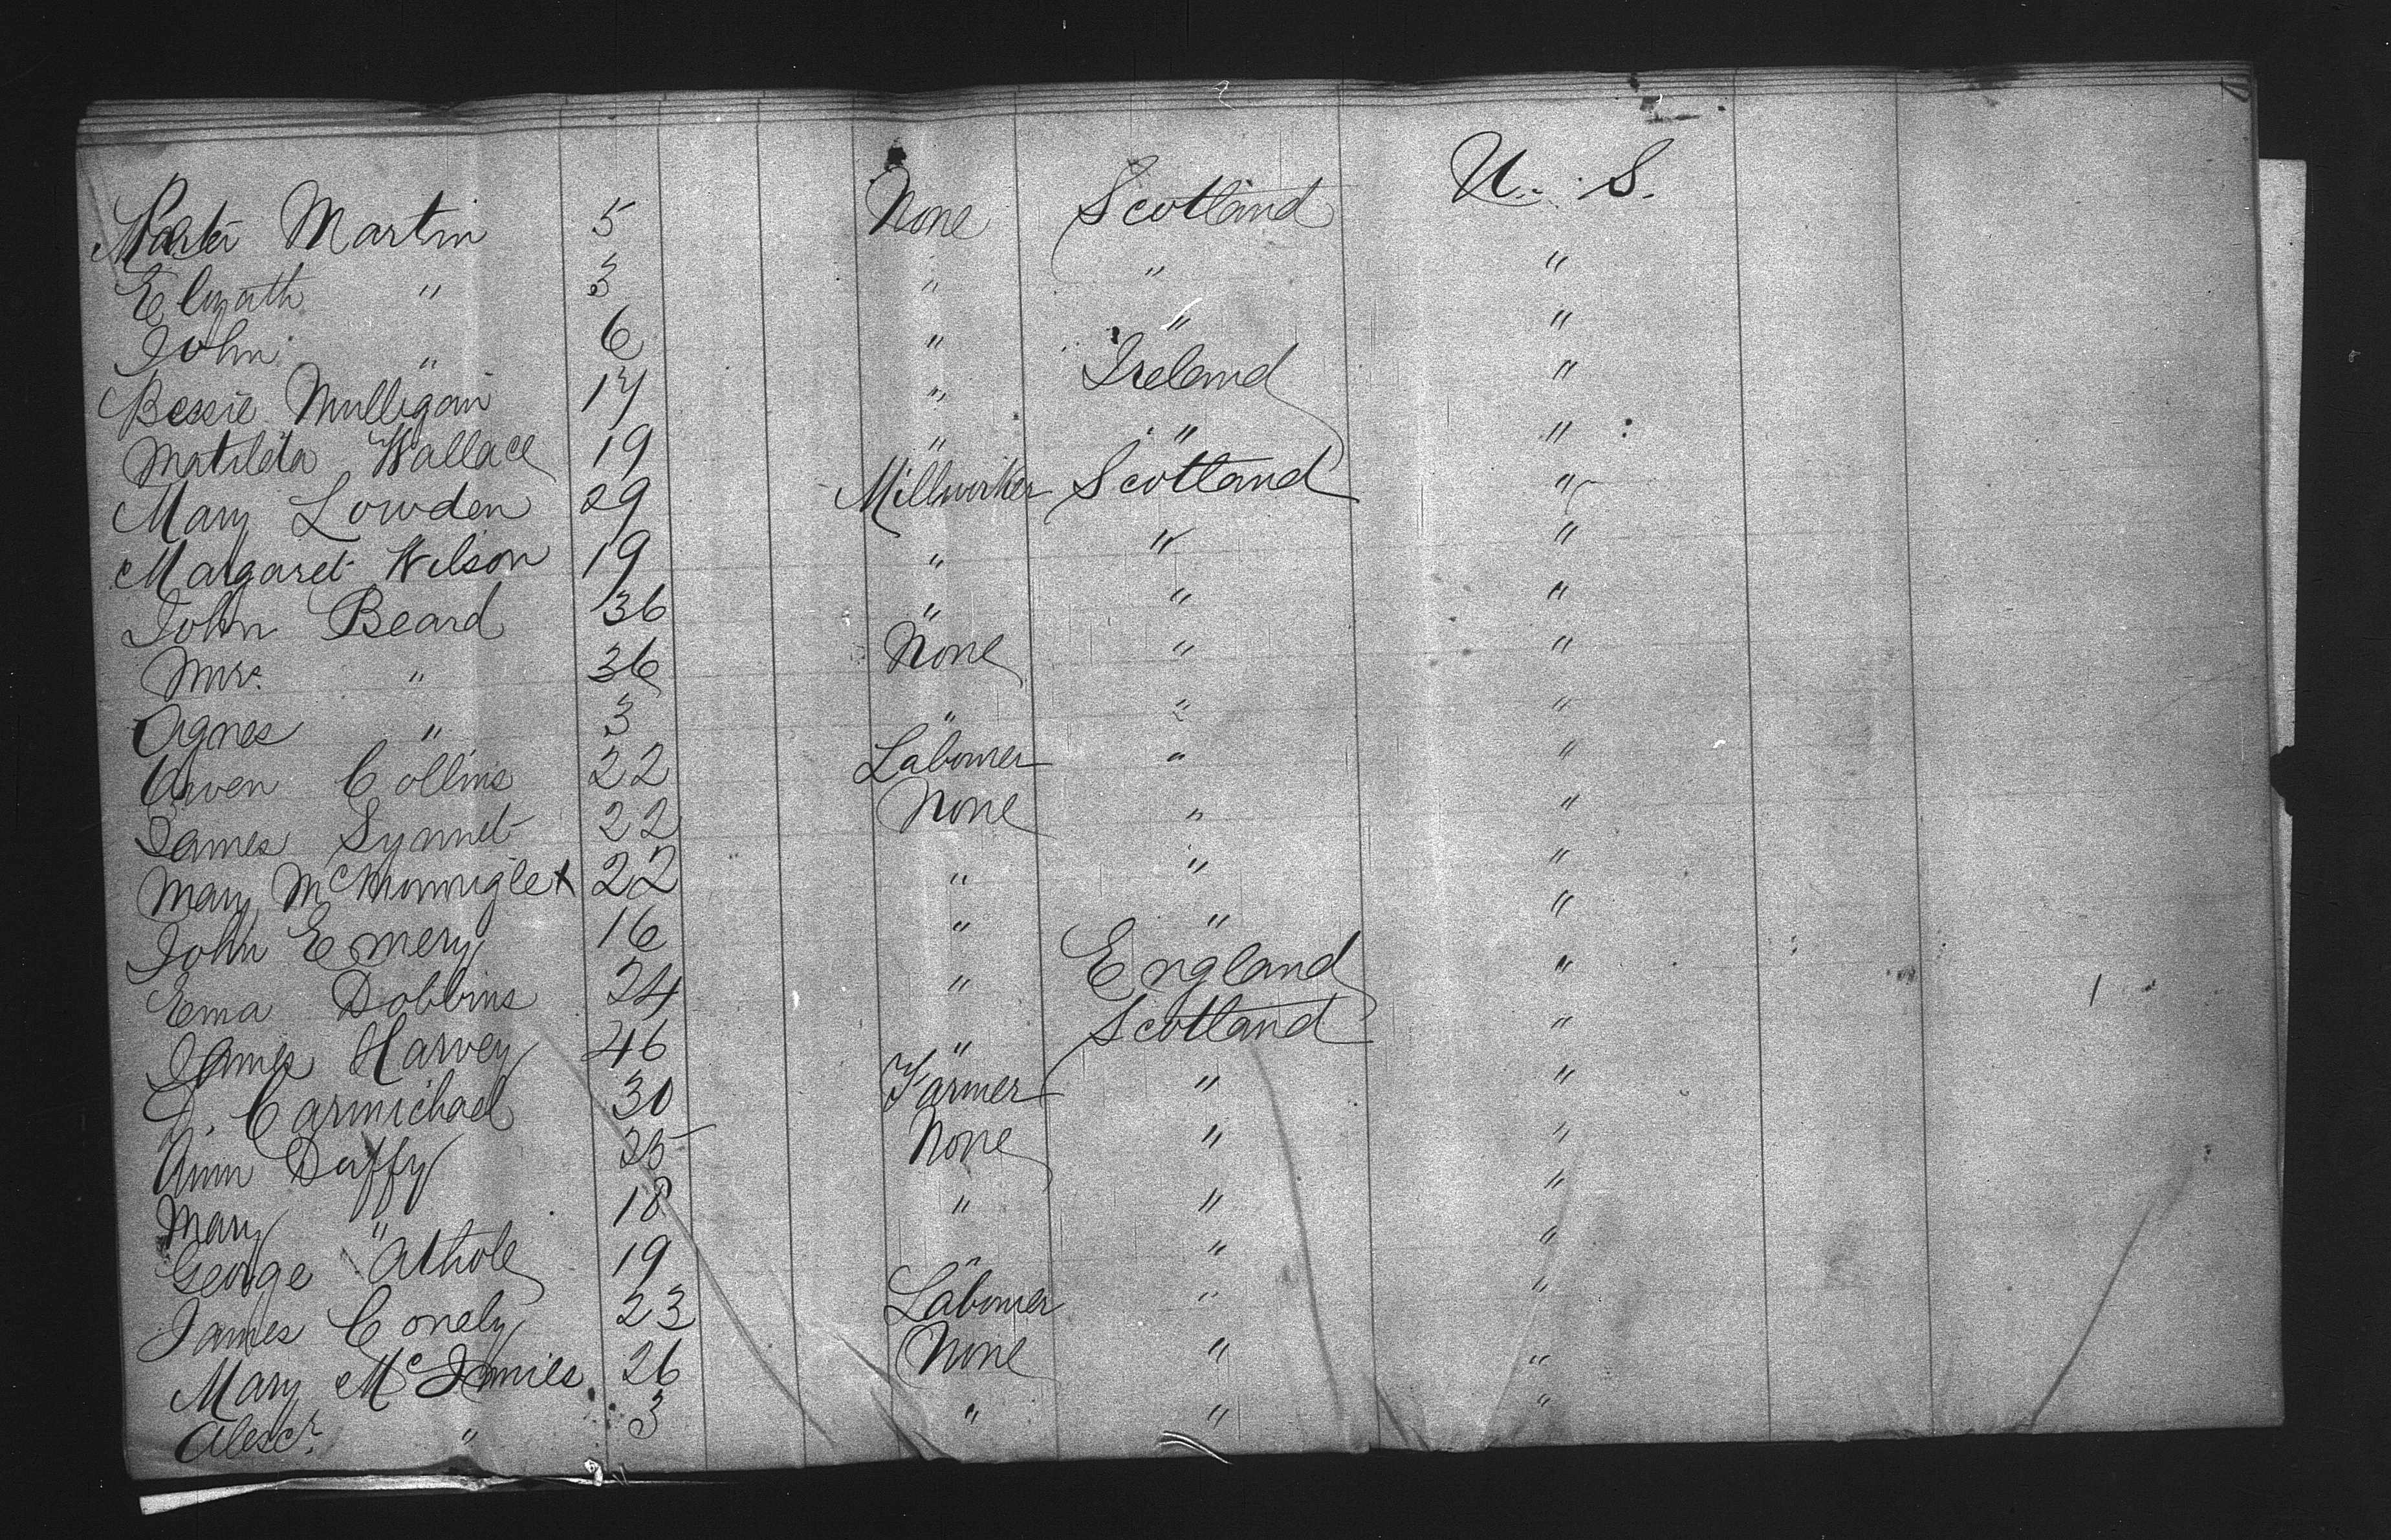 Martin 5 None Scotland U. S.
Elizath " 3 " " "
John " 6 " " "
Bessie Mulligan 17 " Ireland "
Matilda Wallace 19 " " "
Mary Lowden 29 Millworker Scotland "
Margaret Wilson 19 " " "
John Beard 36 " " "
Mrs. " 36 None " "
Agnes " 3 " " "
Owen Collins 22 Labourer " "
James Synnet 22 None " "
Mary McMonnigle x 22 " " "
John Emery 16 " " "
Ema Dobbins 24 " England "
James Harvey 46 " Scotland "
Carmichael 30 Farmer " "
Ann Duffy 25 None " "
Mary " 18 " " "
George Athole 19 " " "
James Conely 23 Labourer " "
Mary 26 None " "
Alexr. " 3 " " "